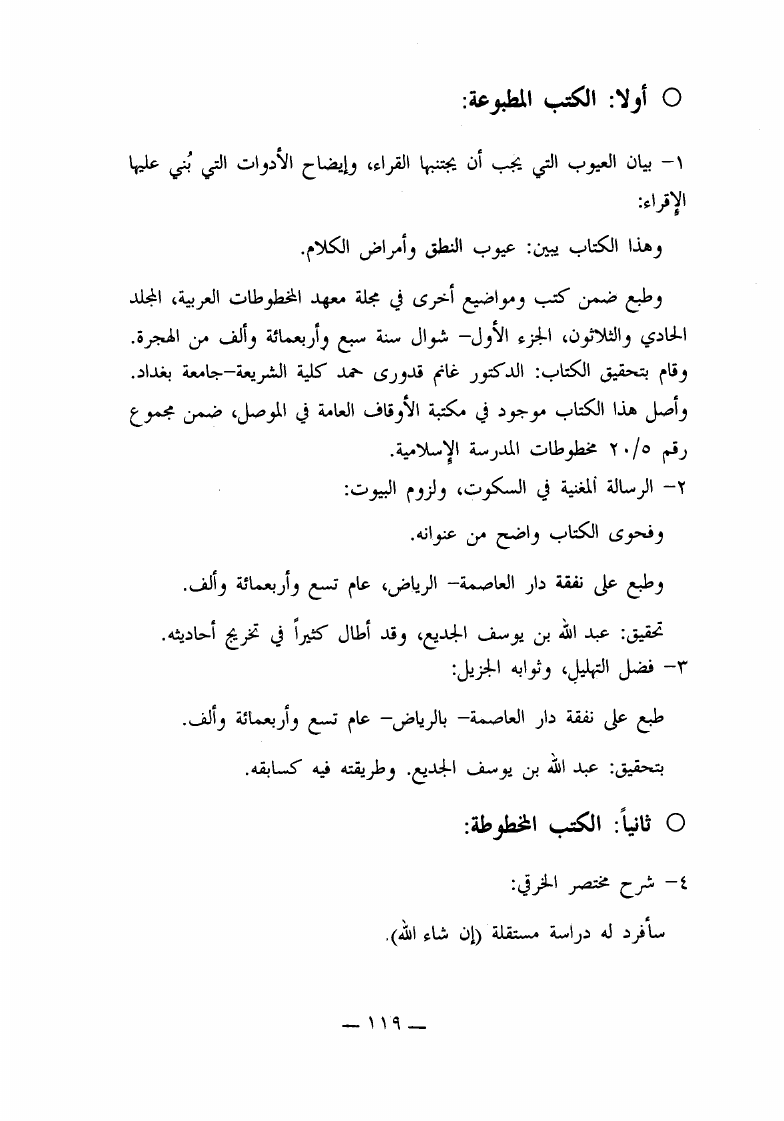 ○ أولا: الكتب المطبوعة:
١- بيان العيوب التي يجب أن يجتنبها القراء، وإيضاح الأدوات التي بُني عليها
الإقراء:
وهذا الكتاب يبين: عيوب النطق وأمراض الكلام.
وطبع ضمن كتب ومواضيع أخرى في مجلة معهد المخطوطات العربية، المجلد
الحادي والثلاثون، الجزء الأول- شوال سنة سبع وأربعمائة وألف من الهجرة.
وقام بتحقيق الكتاب: الدكتور غانم قدورى حمد كلية الشريعة-جامعة بغداد.
وأصل هذا الكتاب موجود في مكتبة الأوقاف العامة في الموصل، ضمن مجموع
رقم ٢٠/٥ مخطوطات المدرسة الإسلامية.
٢- الرسالة المغنية في السكوت، ولزوم البيوت:
وفحوى الكتاب واضح من عنوانه.
وطبع على نفقة دار العاصمة- الرياض، عام تسع وأربعمائة وألف.
تحقيق: عبد الله بن يوسف الجديع، وقد أطال كثيراً في تخريج أحاديثه.
٣- فضل التهليل، وثوابه الجزيل:
طبع على نفقة دار العاصمة- بالرياض- عام تسع وأربعمائة وألف.
بتحقيق: عبد الله بن يوسف الجديع. وطريقته فيه كسابقه.
○ ثانياً: الكتب المخطوطة:
٤- شرح مختصر الخرقي:
سأفرد له دراسة مستقلة (إن شاء الله).
— ١١٩ —